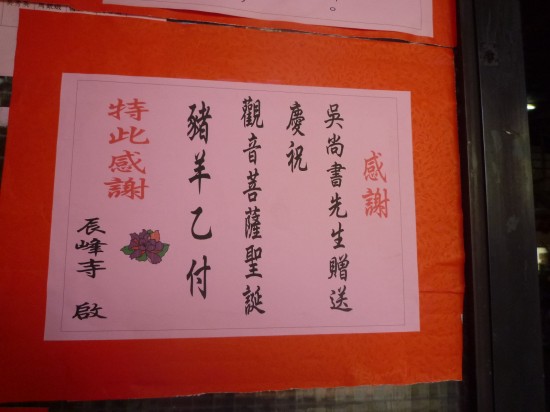 感謝
吳尚書先生贈送
慶祝
觀音菩薩聖誕
豬羊乙付
特此感謝
辰峰寺 啟